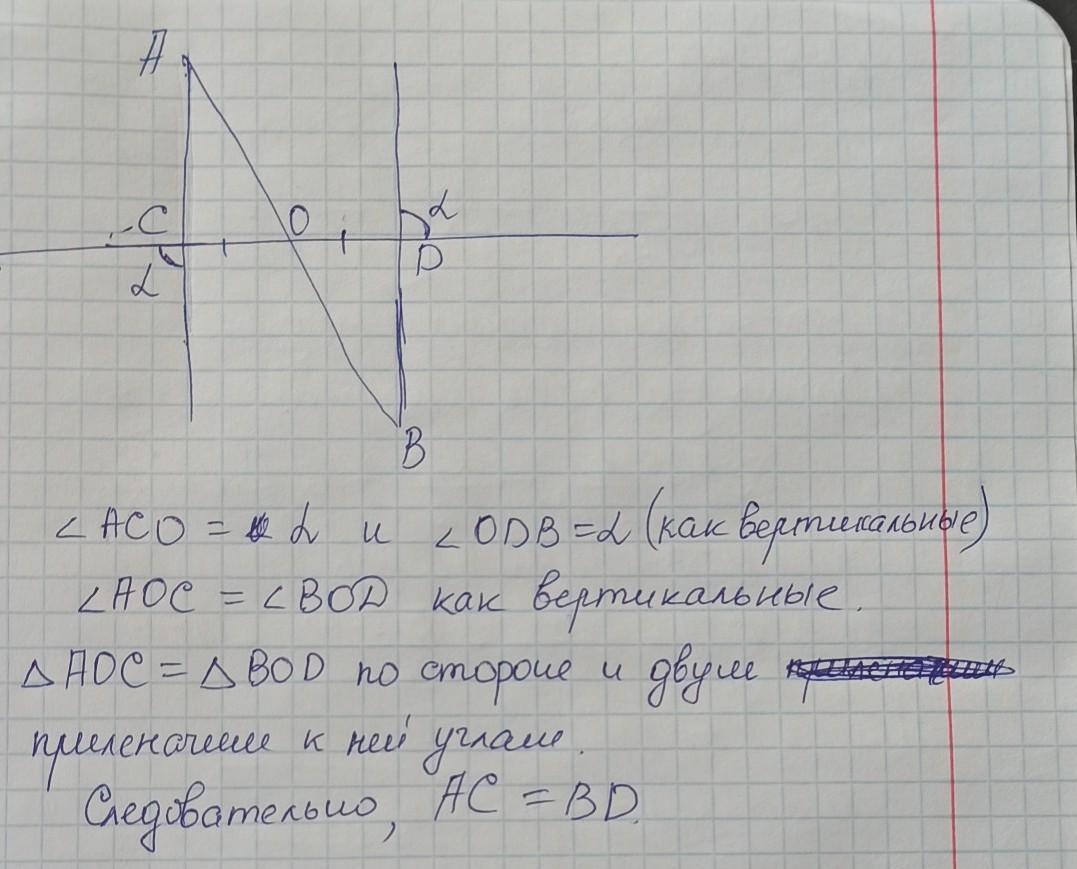 A
C
O
α
D
α
B
∠ACO = α и ∠ODB = α (как вертикальные)
∠AOC = ∠BOD как вертикальные.
△AOC = △BOD по стороне и двум
прилежащим к ней углам.
Следовательно, AC = BD.